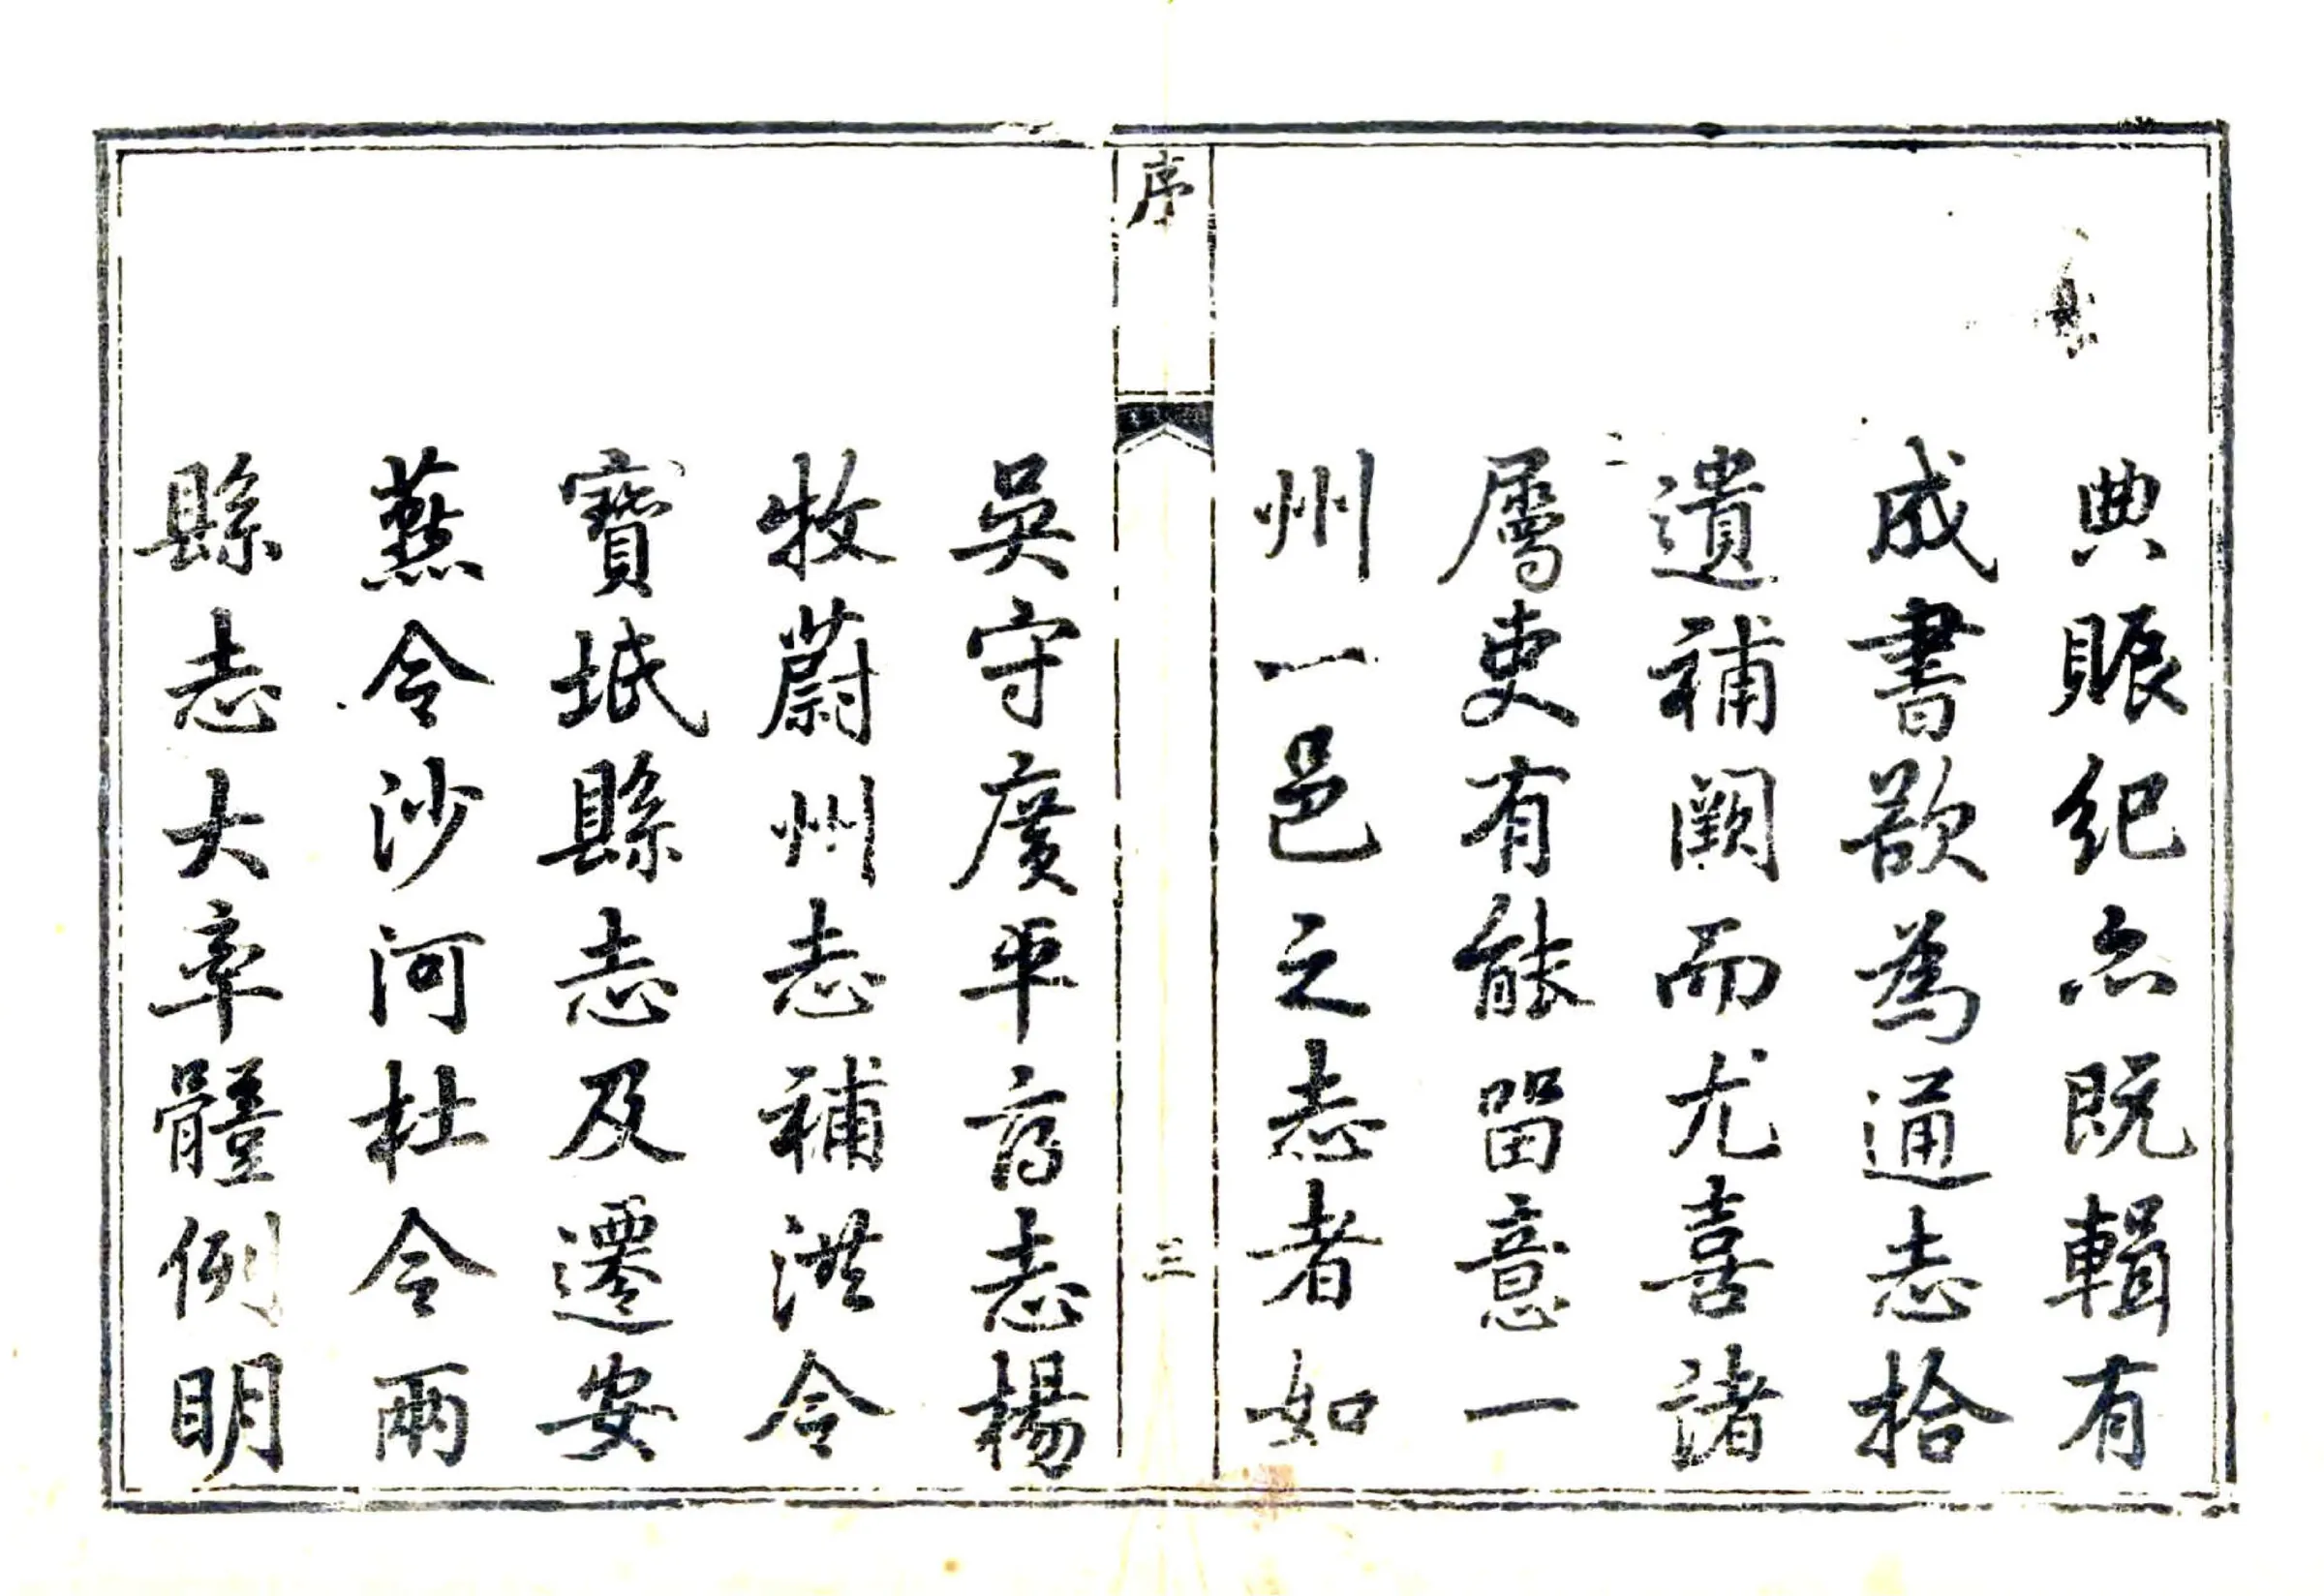 典賑紀亦既輯有
成書欲為通志拾
遺補闕而尤喜諸
屬吏有能留意一
州一邑之志者如
序
三
吳守廣平府志楊
牧蔚州志補洪令
寶坻縣志及遷安
燕令沙河杜令兩
縣志大率體例明